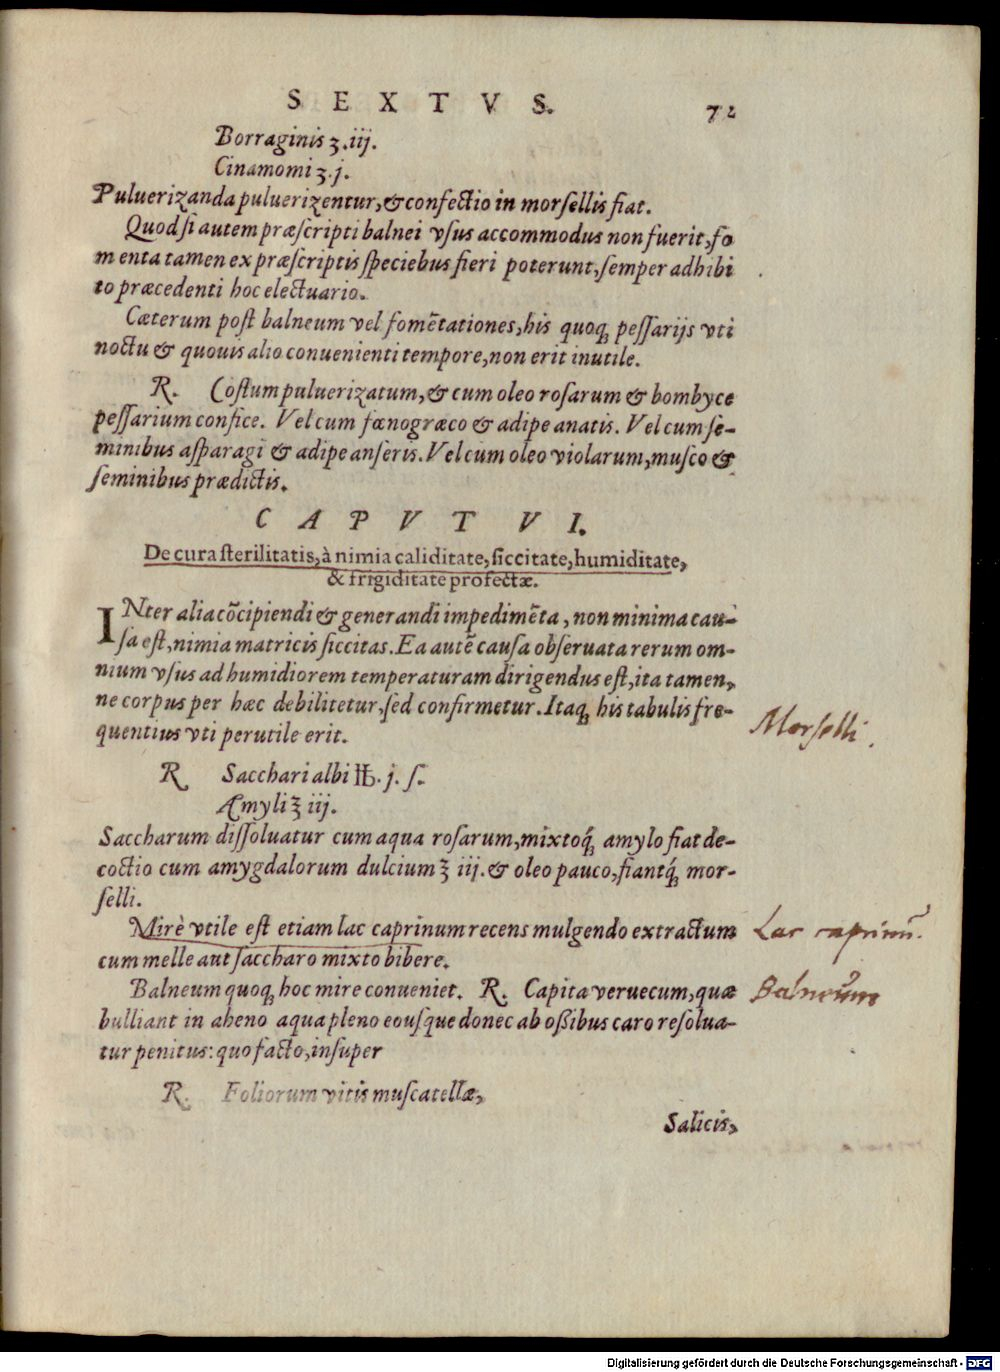 SEXTVS. 72
Borraginis ʒ.iij.
Cinamomi ʒ.j.
Puluerizanda puluerizentur, & confectio in morsellis fiat.
Quod si autem præscripti balnei vsus accommodus non fuerit, fo
menta tamen ex præscriptis speciebus fieri poterunt, semper adhibi
to præcedenti hoc electuario.
Cæterum post balneum vel fomẽtationes, his quoq; pessarijs vti
noctu & quouis alio conuenienti tempore, non erit inutile.
R. Costum puluerizatum, & cum oleo rosarum & bombyce
pessarium confice. Vel cum fœnogræco & adipe anatis. Vel cum se-
minibus asparagi & adipe anseris. Vel cum oleo violarum, musco &
seminibus prædictis.
CAPVT VI.
De cura sterilitatis, à nimia caliditate, siccitate, humiditate,
& frigiditate profectæ.
INter alia cõcipiendi & generandi impedimẽta, non minima cau-
sa est, nimia matricis siccitas. Ea autẽ causa obseruata rerum om-
nium vsus ad humidiorem temperaturam dirigendus est, ita tamen,
ne corpus per hæc debilitetur, sed confirmetur. Itaq; his tabulis fre-
quentius vti perutile erit.
Morselli.
R Sacchari albi ℔. j. s.
Æmyli ℥ iij.
Saccharum dissoluatur cum aqua rosarum, mixtoq́; amylo fiat de-
coctio cum amygdalorum dulcium ℥ iij. & oleo pauco, fiantq́; mor-
selli.
Mirè vtile est etiam lac caprinum recens mulgendo extractum
Lac caprinũ.
cum melle aut saccharo mixto bibere.
Balneum quoq; hoc mire conueniet. R. Capita veruecum, quæ
Balneum
bulliant in aheno aqua pleno eousque donec ab oßibus caro resolua-
tur penitus: quo facto, insuper
R. Foliorum vitis muscatellæ,
Salicis,
Digitalisierung gefördert durch die Deutsche Forschungsgemeinschaft - DFG